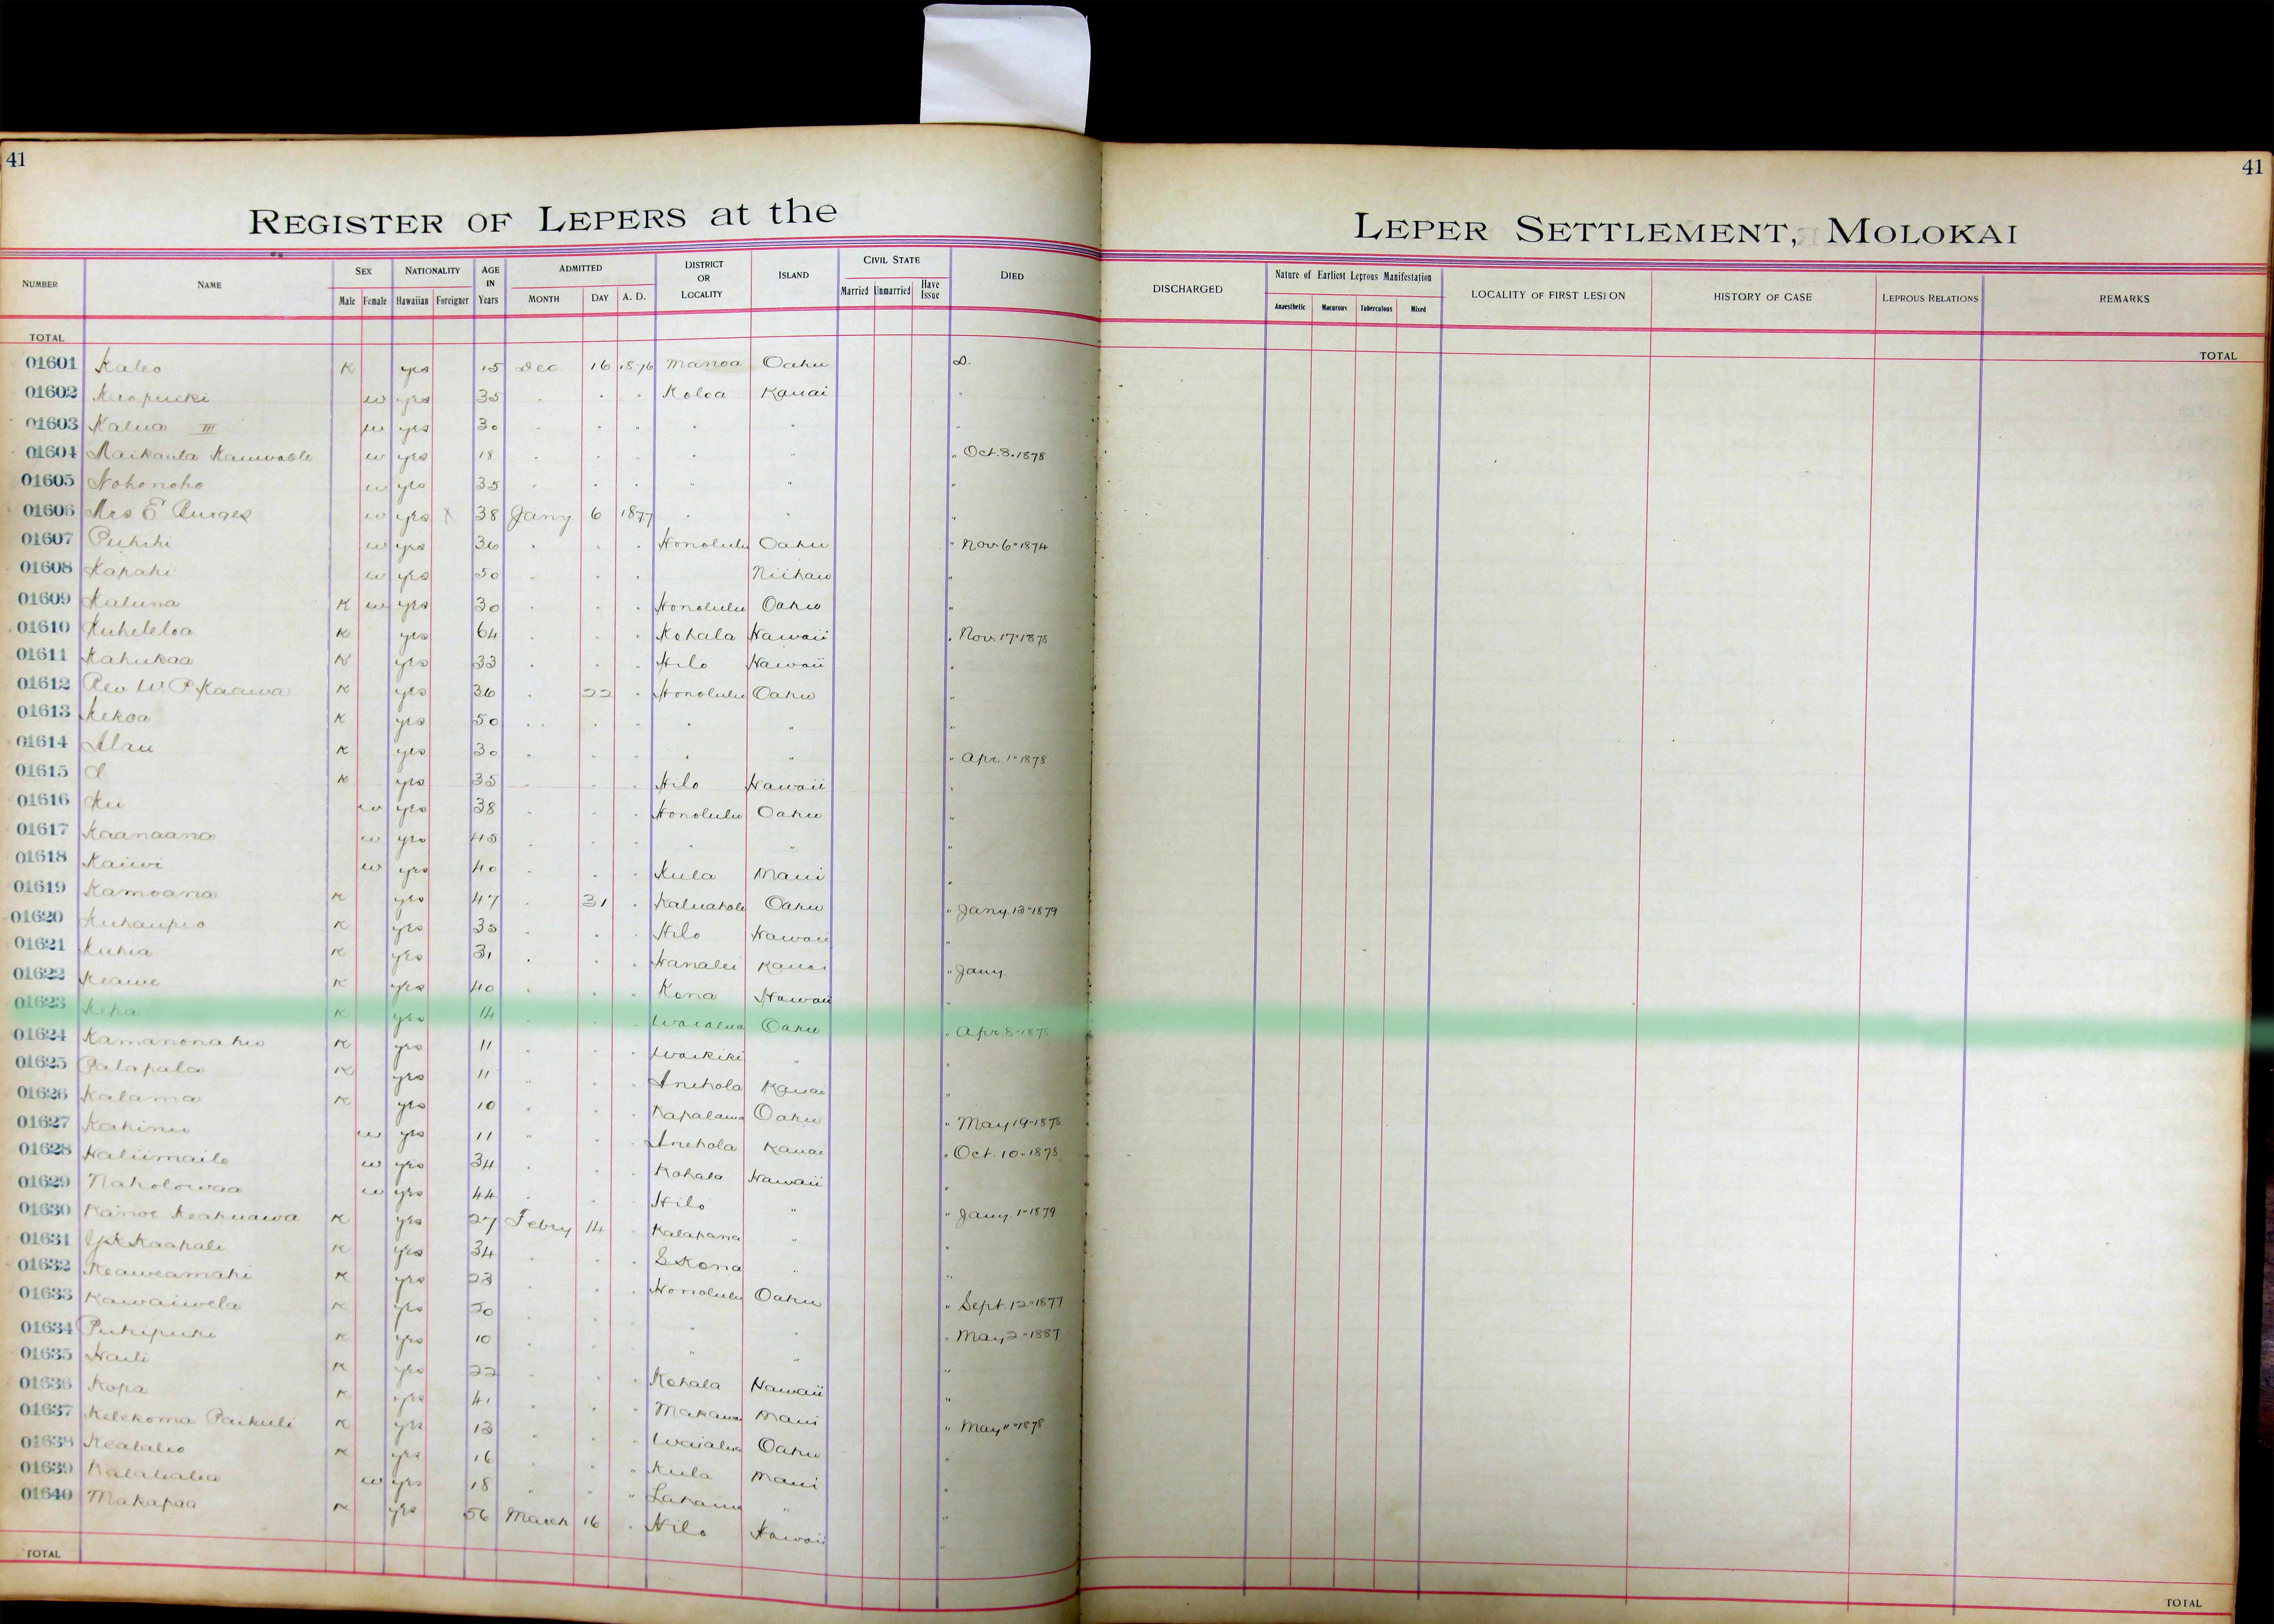 41
41
REGISTER OF LEPERS at the
LEPER SETTLEMENT, MOLOKAI
NUMBER NAME SEX NATIONALITY AGE IN Years ADMITTED DISTRICT OR LOCALITY ISLAND CIVIL STATE DIED DISCHARGED Nature of Earliest Leprous Manifestation LOCALITY OF FIRST LESION HISTORY OF CASE LEPROUS RELATIONS REMARKS
Male Female Hawaiian Foreigner MONTH DAY A. D. Married Unmarried Have Issue Anaesthetic Macurous Tuberculous Mixed
TOTAL TOTAL
01601 Kaleo K yes 15 Dec. 16 1876 Manoa Oahu D.
01602 w yes 35 " " " Koloa Kauai "
01603 Kalua III w yes 30 " " " " " "
01604 Maikaula w yes 18 " " " " " " Oct. 3. 1878
01605 Nohonoho w yes 35 " " " " " "
01606 Mrs E Burges w yes X 38 Jany 6 1877 " " "
01607 Puhihi w yes 36 " " " Honolulu Oahu " Nov 6" 1874
01608 Kapahi w yes 50 " " " Niihau "
01609 Kaluna K w yes 30 " " " Honolulu Oahu "
01610 Kuheleloa K yes 64 " " " Kohala Hawaii " Nov 17" 1878
01611 Kahukaa K yes 33 " " " Hilo Hawaii "
01612 Rev W. P. Kaawa K yes 36 " 22 " Honolulu Oahu "
01613 Kekoa K yes 50 " " " " " "
01614 Alau K yes 30 " " " " " " Apr. 1" 1878
01615 K yes 35 " " " Hilo Hawaii "
01616 Ku w yes 38 " " " Honolulu Oahu "
01617 Kaanaana w yes 45 " " " " " "
01618 Kaiwi w yes 40 " " " Kula Maui "
01619 Kamoana K yes 47 " 31 " Oahu " Jany. 13" 1879
01620 Kuhaupio K yes 35 " " " Hilo Hawaii "
01621 Kuhia K yes 31 " " " Hanalei Kauai " Jany.
01622 Keawe K yes 40 " " " Kona Hawaii "
01623 Kepa K yes 14 " " " Waialua Oahu " Apr. 8" 1878
01624 K yes 11 " " " Waikiki " "
01625 Palapala K yes 11 " " " Anehola Kauai "
01626 Kalama K yes 10 " " " Kapalama Oahu " May 19" 1878
01627 Kahinu w yes 11 " " " Anehola Kauai " Oct. 10" 1878
01628 Haliimaile w yes 34 " " " Kohala Hawaii "
01629 Naholowaa w yes 44 " " " Hilo " " Jany. 1" 1879
01630 Kainoe Keakuawa K yes 27 Febry 14 " Kalapana " "
01631 Kaapale K yes 34 " " " S Kona " "
01632 Keaweamahi K yes 23 " " " Honolulu Oahu " Sept. 12" 1877
01633 Kawaiwela K yes 20 " " " " " " May 2" 1887
01634 Puhipuhi K yes 10 " " " " " "
01635 Haili K yes 22 " " " Kohala Hawaii "
01636 Kopa K yes 41 " " " Makawao Maui " May 11" 1878
01637 Kelekoma Paikuli K yes 13 " " " Waialua Oahu "
01638 Kealalio K yes 16 " " " Kula Maui "
01639 w yes 18 " " " Lahaina " "
01640 Makapaa K yes 56 March 16 " Hilo Hawaii "
TOTAL TOTAL